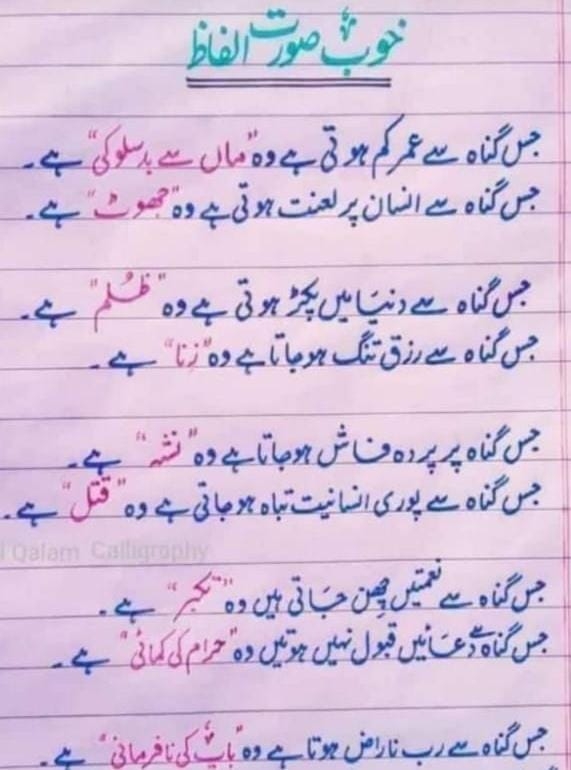 خوب صورت الفاظ
جس گناہ سے عمر کم ہوتی ہے وہ "ماں سے بدسلوکی" ہے۔
جس گناہ سے انسان پر لعنت ہوتی ہے وہ "جھوٹ" ہے۔
جس گناہ سے دنیا میں پکڑ ہوتی ہے وہ "ظُلم" ہے۔
جس گناہ سے رزق تنگ ہوجاتا ہے وہ "زِنا" ہے۔
جس گناہ پر پردہ فاش ہوجاتا ہے وہ "نشہ" ہے۔
جس گناہ سے پوری انسانیت تباہ ہوجاتی ہے وہ "قتل" ہے۔
Qalam Calligraphy
جس گناہ سے نعمتیں چھِن جاتی ہیں وہ "تکبر" ہے۔
جس گناہ سے دُعائیں قبول نہیں ہوتیں وہ "حرام کی کمائی" ہے۔
جس گناہ سے رب ناراض ہوتا ہے وہ "باپ کی نافرمانی" ہے۔